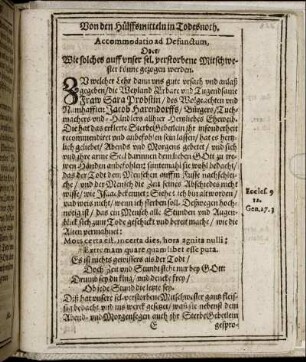 Von den Hülffsmitteln in Todesnoth.
Accommodatio ad Defunctum,
Oder
Wie solches auff unser sel. verstorbene Mitschwe-
ster könne gezogen werden.
Zu welcher Lehr dann uns gute ursach und anlaß
gegeben / die Weyland Erbare und Tugendsame
Fraw Sara Probstin / des Wolgeachten und
Namhafften Jacob Harendorffs / Bürgers / Tuch-
machers und Händlers allhier Herzliebes Eheweib.
Die hat das erklerte SterbeGebetlein ihr insonderheit
recommendiret und anbefohlen sein lassen / hat es herz-
lich geliebet / Abends und Morgens gebetet / und sich
und ihre arme Seel damit dem lieben GOtt zu trewen
Händen anbefohlen / sintemahl sie wohl bedacht /
das der Todt dem Menschen auff dem Fusse nachschlei-
che / und der Mensche die Zeit seines Abschiedes nicht
wisse / wie Isaac bekennet: Siehe / ich bin alt worden /
und weis nicht / wenn ich sterben soll. Deßwegen hoch-
nötig ist / das ein Mensch alle Stunden und Augen-
blick sich zum Tode geschickt und bereit mache / wie die
Alten vermahnet:
Mors certa est, incerta dies, hora agnita nulli:
Extremam quare quamlibet esse puta.
Es ist nichts gewissers als der Tod /
Doch Zeit und Stund steht nur bey GOtt
Drumb sey du klug / und dencke frey /
Ob jede Stund die letzte sey.
Diß hat unsere sel. verstorbene Mitschwester gantz fleis-
sig bedacht und ins werck gesetzt / was sie nebenst dem
Abend- und Morgensegen auch ihr SterbeGebetlein
E
gespro-
Ecclef. 9
12.
Gen. 27. 3